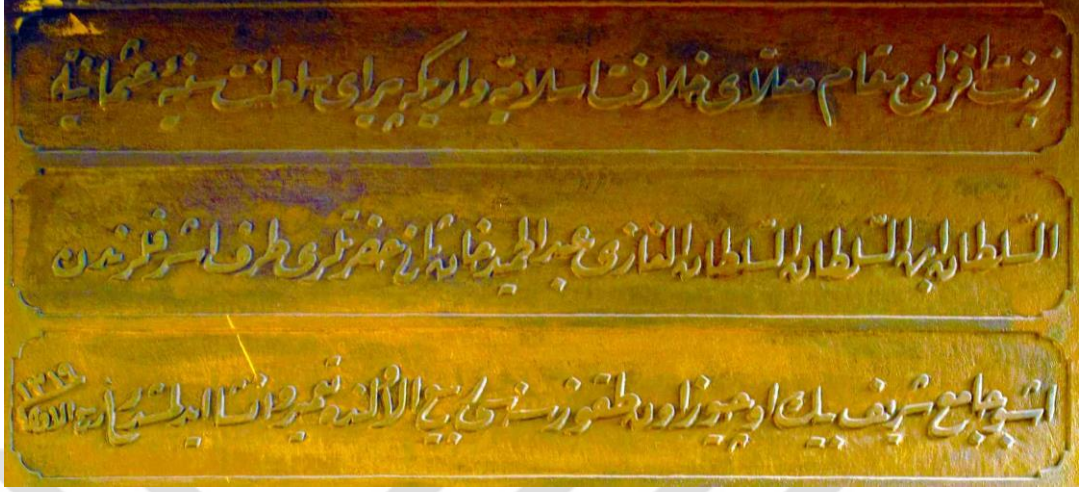 زينت افزاى مقام معلاى خلافت اسلاميه واريكه پيراى سلطنت سنيه عثمانيه
السلطان ابن السلطان السلطان الغازى عبد الحميد خان ثانى حضرتلرى طرف اشرفلرندن
اشبو جامع شريف بيك اوچيوز اون طقوز سنه سى ربيع الاخرنده تعمير وانشا ايدلمشدر ١٣١٩